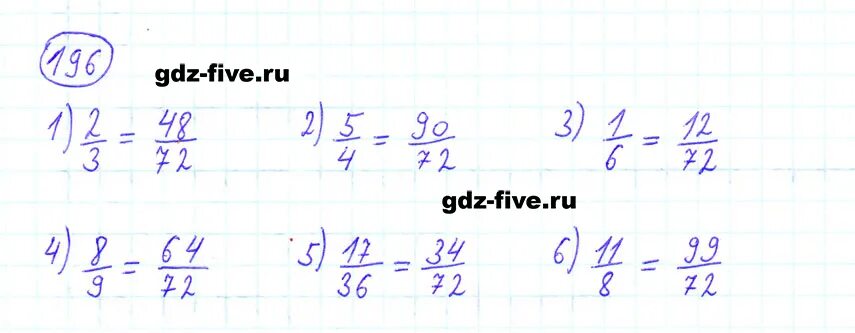 196
gdz-five.ru
1) 2/3 = 48/72 2) 5/4 = 90/72 3) 1/6 = 12/72
gdz-five.ru
4) 8/9 = 64/72 5) 17/36 = 34/72 6) 11/8 = 99/72